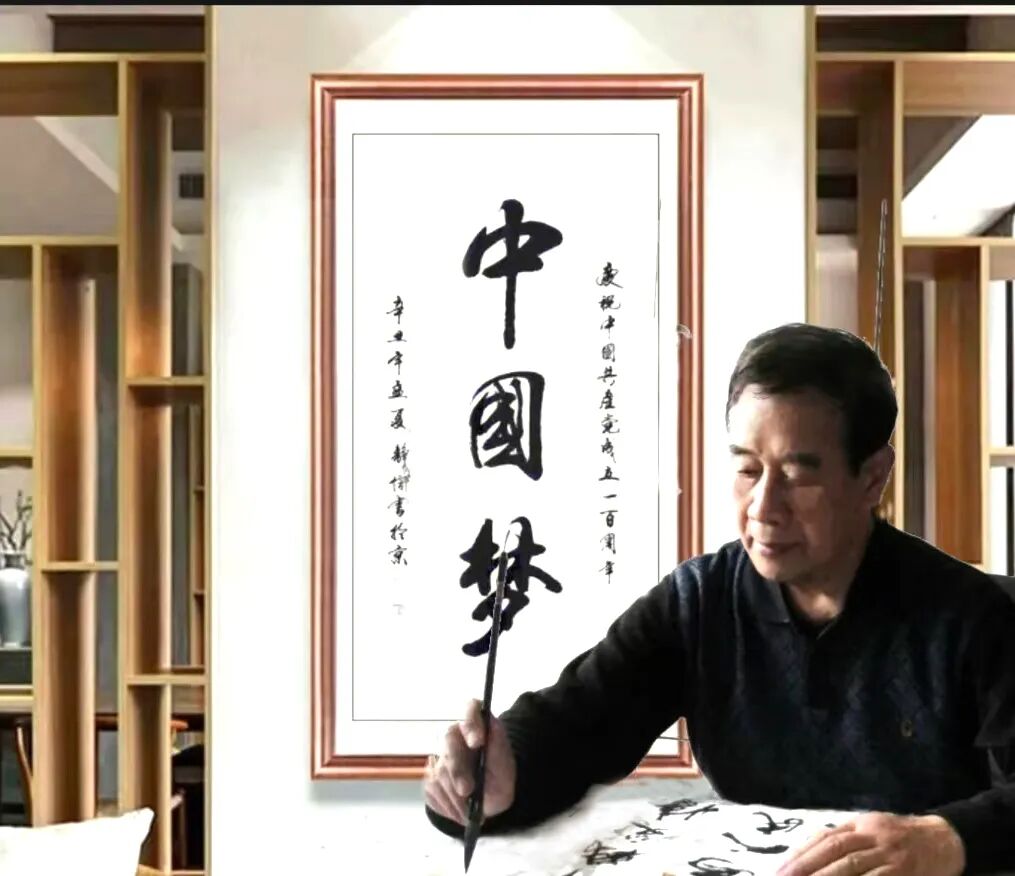 慶祝中國共産党成立一百周年
中國梦
辛丑年盛夏 静書於京